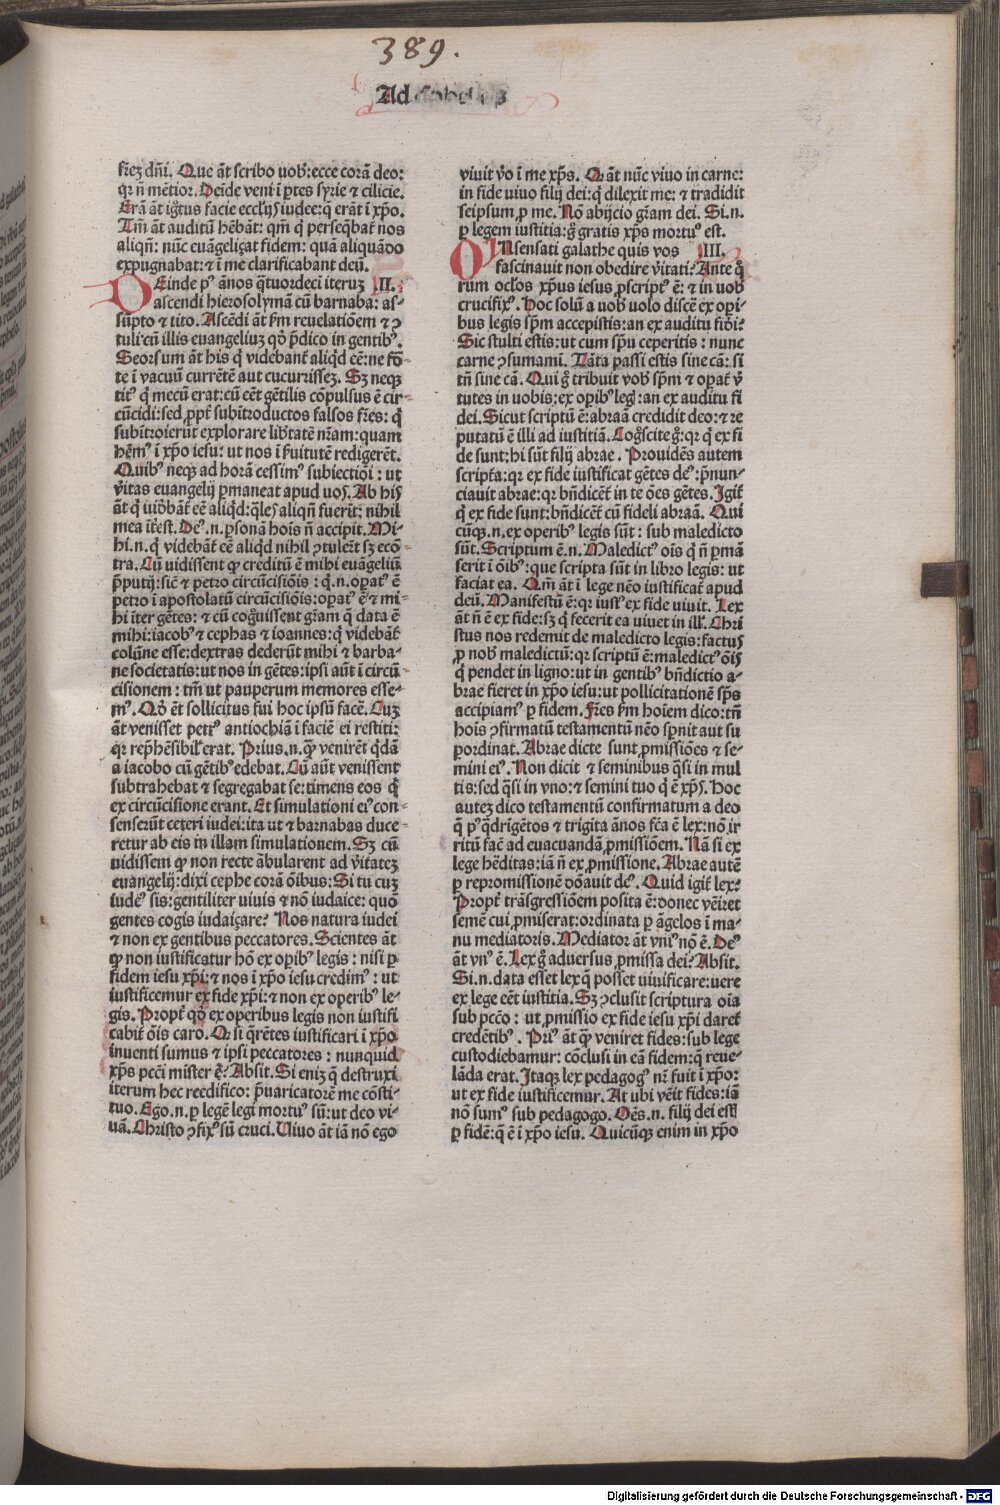 389.
Ad
frez dñi. Que āt scribo uob̕: ecce corā deo:
qr ñ mētior. Deīde veni ī ꝑtes syrie ⁊ cilicie.
Erā āt igtus facie ecclijs iudee: q̄ erāt ī xp̄o.
Tm̄ āt auditū hēbāt: qm̄ q̕ perseq̄bat̕ nos
aliqñ: nūc euāgeliçat fidem: quā aliquādo
expugnabat: ⁊ ī me clarificabant deū.
DEinde pꝰ ānos q̄tuordeci iteruz .II.
ascendi hierosolymā cū barnaba: as-
sūpto ⁊ tito. Ascēdi āt ẜm reuelatiōem ⁊ ꝯ
tuli cū illis euangeliuz qd̕ p̄dico in gentibꝰ.
Seorsum āt his q̕ videbant̕ aliqd eē: ne fō-
te ī vacuū currētē aut cucurrissez. Sz neqz
titꝰ q̕ mecū erat: cū cēt gētilis cōpulsus ē cir-
cūcidi: sed ꝓpt̕ subītroductos falsos fr̄es: q̕
subītroierūt explorare lib̕tatē nr̄am: quam
hēmꝰ ī xp̄o iesu: ut nos ī ẜuitutē redigerēt.
Quibꝰ neqz ad horā cessimꝰ subiectiōi: ut
v̄itas euangelij ꝑmaneat apud uos. Ab his
āt q̕ uidebāt̕ eē aliqd: q̄les aliqñ fuerīt: nihil
mea īt̕est. Deꝰ .n. ꝑsonā hois ñ accipit. Mi-
hi .n. q̕ videbāt̕ eē aliqd nihil ꝯtulēt̕ sz ecō-
tra. Cū uidissent qꝫ creditū ē mihi euāgeliū
p̄putij: sic̄ ⁊ petro circūcisiōis: q̕ .n. opat̕ ē
petro ī apostolatū circūcisiōis: opat̕ ē ⁊ mi-
hi īter gētes: ⁊ cū cog̃uissent gr̄am q̄ data ē
mihi: iacobꝰ ⁊ cephas ⁊ ioannes: q̕ videbāt̕
colūne esse: dextras dederūt mihi ⁊ barba-
ne societatis: ut nos in gētes: ipsi aūt ī circū
cisionem: tm̄ ut pauperum memores esse-
mꝰ. Qd̕ ēt sollicitus fui hoc ipsū facē. Cuz
āt venisset petrꝰ antiochiā ī faciē ei restiti:
qr rep̄hēsibil̕ erat. Prius .n. qꝫ venirēt q̕dā
a iacobo cū gētibꝰ edebat. Cū aūt venissent
subtrahebat ⁊ segregabat se: timens eos q̕
ex circūcisione erant. Et simulationi eiꝰ con-
senserūt ceteri iudei: ita ut ⁊ barnabas duce-
retur ab eis in illam simulationem. Sz cū
uidissem qꝫ non recte ābularent ad v̄itatez
euangelij: dixi cephe corā oībus: Si tu cuz
iudeꝰ sis: gentiliter uiuis ⁊ nō iudaice: quō
gentes cogis iudaiçare? Nos natura iudei
⁊ non ex gentibus peccatores. Scientes āt
qꝫ non iustificatur hō ex opib̕ legis: nisi ꝑ
fidem iesu xp̄i: ⁊ nos ī xp̄o iesu credimꝰ: ut
iustificemur ex fide xp̄i: ⁊ non ex operibꝰ le-
gis. Propt̕ qd̕ ex operibus legis non iustifi
cabit̕ ōis caro. Q̕ si q̄rētes iustificari ī xp̄o
inuenti sumus ⁊ ipsi peccatores: nunquid
xp̄s pccī mīster ē? Absit. Si eniz q̄ destruxi
iterum hec reedifico: p̄uaricatorē me cōsti-
tuo. Ego .n. ꝑ legē legi mortuꝰ sū: ut deo vi-
uā. Christo ꝯfixꝰ sū cruci. Uiuo āt iā nō ego
viuit v̕o ī me xp̄s. Q̕ āt nūc viuo in carne:
in fide uiuo filij dei: q̕ dilexit me: ⁊ tradidit
seipsum ꝓ me. Nō abijcio gr̄am dei. Si .n.
ꝑ legem iustitia: g̕ gratis xp̄s mortuꝰ est.
OInsensati galathe quis vos .III.
fascinauit non obedire v̄itati? Ante q̕
rum oclos xp̄us iesus ꝓscriptꝰ ē: ⁊ in uob̕
crucifixꝰ. Hoc solū a uob̕ uolo discē ex opi-
bus legis spm̄ accepistis: an ex auditu fidei?
Sic stulti estis: ut cum spū ceperitis: nunc
carne ꝯsumami. Tāta passi estis sine cā: si
tñ sine cā. Qui g̕ tribuit vob̕ spm̄ ⁊ opat̕ v̕
tutes in uobis: ex opibꝰ leg̕: an ex auditu fi
dei. Sicut scriptū ē: abraā credidit deo: ⁊ re
putatū ē illi ad iustitiā. Cog̃scite g̕: qr q̕ ex fi
de sunt: hi sūt filij abrae. Prouidēs autem
script̕a: qr ex fide iustificat gētes deꝰ: p̄nun-
ciauit abrae: qr bn̄dicēt̕ in te ōes gētes. Igit̕
q̕ ex fide sunt: bn̄dicēt̕ cū fideli abraā. Qui
cūqz .n. ex operibꝰ legis sūt: sub maledicto
sūt. Scriptum ē .n. Maledictꝰ ois q̕ ñ ꝑmā
serit ī oībꝰ: que scripta sūt in libro legis: ut
faciat ea. Qm̄ āt ī lege nēo iustificat̕ apud
deū. Manifestū ē: qr iustꝰ ex fide viuit. Lex
āt ñ ē ex fide: sz q̕ fecerit ea uiuet in ill̕. Chri
stus nos redemit de maledicto legis: factus
ꝓ nob̕ maledictū: qr scriptū ē: maledictꝰ ōis
q̕ pendet in ligno: ut in gentibꝰ bn̄dictio a-
brae fieret in xp̄o iesu: ut pollicitationē spūs
accipiamꝰ ꝑ fidem. Fr̄es ẜm hoīem dico: tñ
hoīs ꝯfirmatū testamentū nēo spnit aut su
ꝑordinat. Abrae dicte sunt ꝓmissiōes ⁊ se-
mini eiꝰ. Non dicit ⁊ seminibus q̄si in mul
tis: sed q̄si in vno: ⁊ semini tuo q̕ ē xp̄s. Hoc
autez dico testamentū confirmatum a deo
q̄ pꝰ q̄drigētos ⁊ trigita ānos fcā ē lex: nō ir
ritū facē ad euacuandā ꝓmissiōem. Nā si ex
lege hēditas: iā ñ ex ꝓmissione. Abrae autē
ꝑ repromissionē dōauit deꝰ. Quid igit̕ lex?
Propt̕ trāsgressiōem posita ē: donec vēiret
semē cui ꝓmiserat: ordinata ꝑ āgelos ī ma-
nu mediatoris. Mediator āt vniꝰ nō ē. Deꝰ
āt vnꝰ ē. Lex g̕ aduersus ꝓmissa dei? Absit.
Si .n. data esset lex q̄ posset uiuificare: uere
ex lege eēt iustitia. Sz ꝯclusit scriptura oīa
sub pcc̄o: ut ꝓmissio ex fide iesu xp̄i daret̕
credētibꝰ. Priꝰ āt qꝫ veniret fides: sub lege
custodiebamur: cōclusi in eā fidem: q̄ reue-
lāda erat. Itaqz lex pedagogꝰ nr̄ fuit ī xp̄o:
ut ex fide iustificemur. At ubi vēit fides: iā
nō sumꝰ sub pedagogo. Oēs .n. filij dei estis
ꝑ fidē: q̄ ē ī xp̄o iesu. Quicūqz enim in xp̄o
Digitalisierung gefördert durch die Deutsche Forschungsgemeinschaft - DFG